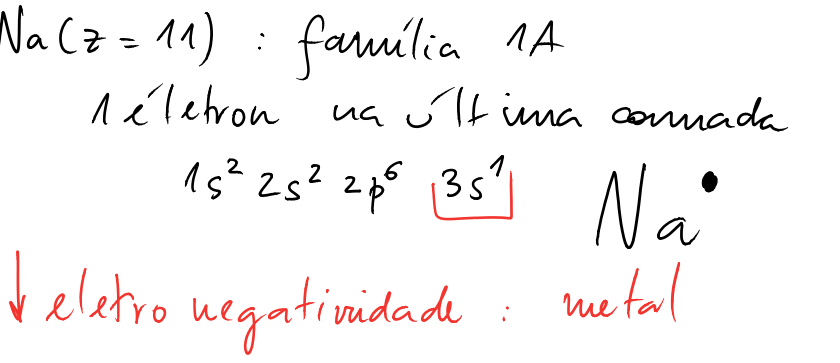 Na (z = 11) : família 1A
1 életron na última camada
1s² 2s² 2p⁶ 3s¹
Na•
↓ eletronegatividade : metal